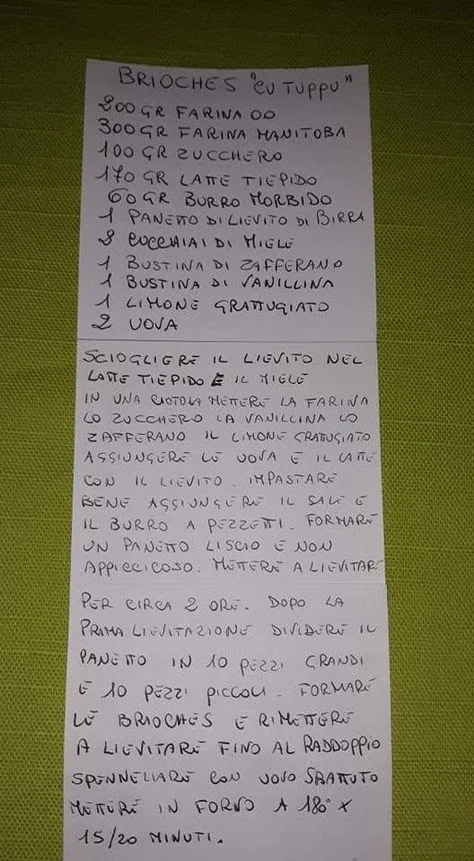 BRIOCHES "CU TUPPU"
200 GR FARINA 00
300 GR FARINA MANITOBA
100 GR ZUCCHERO
170 GR LATTE TIEPIDO
60 GR BURRO MORBIDO
1 PANETTO DI LIEVITO DI BIRRA
2 CUCCHIAI DI MIELE
1 BUSTINA DI ZAFFERANO
1 BUSTINA DI VANILLINA
1 LIMONE GRATTUGIATO
2 UOVA
SCIOGLIERE IL LIEVITO NEL
LATTE TIEPIDO E IL MIELE
IN UNA CIOTOLA METTERE LA FARINA
LO ZUCCHERO LA VANILLINA LO
ZAFFERANO IL LIMONE GRATTUGIATO
AGGIUNGERE LE UOVA E IL LATTE
CON IL LIEVITO. IMPASTARE
BENE AGGIUNGERE IL SALE E
IL BURRO A PEZZETTI. FORMARE
UN PANETTO LISCIO E NON
APPICCICOSO. METTERE A LIEVITARE
PER CIRCA 2 ORE. DOPO LA
PRIMA LIEVITAZIONE DIVIDERE IL
PANETTO IN 10 PEZZI GRANDI
E 10 PEZZI PICCOLI. FORMARE
LE BRIOCHES E RIMETTERE
A LIEVITARE FINO AL RADDOPPIO
SPENNELLARE CON UOVO SBATTUTO
METTERE IN FORNO A 180° X
15/20 MINUTI.